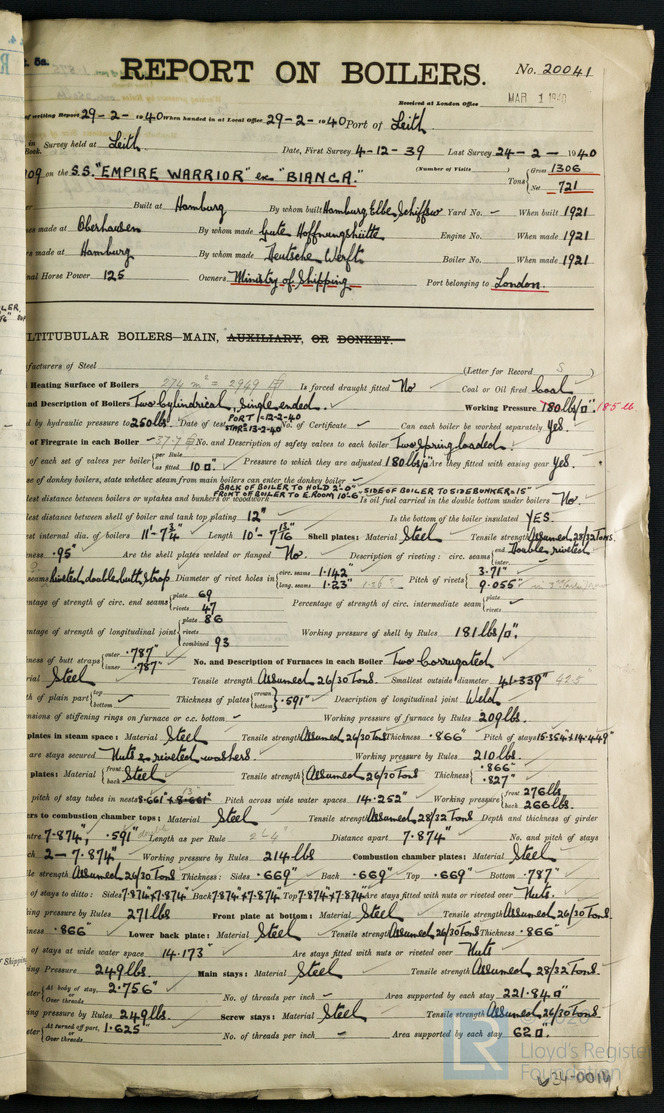 5a.
REPORT ON BOILERS.
No. 20041
Received at London Office MAR 1 1940
of writing Report 29-2-1940 When handed in at Local Office 29-2-1940 Port of Leith
Survey held at Leith Date, First Survey 4-12-39 Last Survey 24-2-1940
on the S.S. "EMPIRE WARRIOR" ex "BIANCA." (Number of Visits ) Tons { Gross 1306 Net 721
Built at Hamburg By whom built Hamburg Elbe Schiffsw Yard No. - When built 1921
made at Oberhausen By whom made Gute Hoffnungshütte Engine No. When made 1921
made at Hamburg By whom made Deutsche Werft Boiler No. When made 1921
Horse Power 125 Owners Ministry of Shipping Port belonging to London.
LTITUBULAR BOILERS—MAIN, AUXILIARY, OR DONKEY.
facturers of Steel (Letter for Record S )
Heating Surface of Boilers 274 m² = 2949 Is forced draught fitted No Coal or Oil fired Coal
nd Description of Boilers Two Cylindrical, Single ended. Working Pressure 180 lbs/□" 185 lb
d by hydraulic pressure to 250 lbs. Date of test PORT 12-2-40 STAR 13-2-40 No. of Certificate Can each boiler be worked separately Yes.
of Firegrate in each Boiler 37.7 No. and Description of safety valves to each boiler Two Spring loaded.
of each set of valves per boiler { per Rule as fitted 10 □" Pressure to which they are adjusted 180 lbs/□" Are they fitted with easing gear Yes.
se of donkey boilers, state whether steam from main boilers can enter the donkey boiler
BACK OF BOILER TO HOLD 2'-0" SIDE OF BOILER TO SIDE BUNKER = 15"
FRONT OF BOILER TO E.ROOM 10'-6"
lest distance between boilers or uptakes and bunkers or woodwork Is oil fuel carried in the double bottom under boilers No.
lest distance between shell of boiler and tank top plating 12" Is the bottom of the boiler insulated YES.
st internal dia. of boilers 11'-7¾" Length 10'-7 13/16" Shell plates: Material Steel Tensile strength Assumed 28/32 Tons.
ness .95" Are the shell plates welded or flanged No. Description of riveting: circ. seams { end Double riveted inter.
seams riveted, double butt strap Diameter of rivet holes in { circ. seams 1.142" long. seams 1.23" Pitch of rivets { 3.71" 9.055"
ntage of strength of circ. end seams { plate 69 rivets 47 Percentage of strength of circ. intermediate seam { plate rivets
ntage of strength of longitudinal joint { plate 86 rivets combined 93 Working pressure of shell by Rules 181 lbs/□".
ness of butt straps { outer .787" inner .787" No. and Description of Furnaces in each Boiler Two Corrugated
ial Steel Tensile strength Assumed 26/30 Tons. Smallest outside diameter 41.339" 42.5"
th of plain part { top bottom Thickness of plates { crown bottom } .591" Description of longitudinal joint Weld
nsions of stiffening rings on furnace or c.c. bottom Working pressure of furnace by Rules 209 lbs.
plates in steam space: Material Steel Tensile strength Assumed 26/30 Tons Thickness .866" Pitch of stays 15.354" x 14.449"
are stays secured Nuts & riveted washers. Working pressure by Rules 210 lbs.
plates: Material { front back Steel Tensile strength { Assumed 26/30 Tons Thickness { .866" .827"
pitch of stay tubes in nests 8.661" x 8.661" Pitch across wide water spaces 14.252" Working pressure { front 276 lbs back 266 lbs.
ers to combustion chamber tops: Material Steel Tensile strength Assumed 28/32 Tons Depth and thickness of girder
ntre 7.874", .591" Length as per Rule 2'-4" Distance apart 7.874" No. and pitch of stays
ch 2-7.874" Working pressure by Rules 214 lbs Combustion chamber plates: Material Steel
le strength Assumed 26/30 Tons Thickness: Sides .669" Back .669" Top .669" Bottom .787"
of stays to ditto: Sides 7.874" x 7.874" Back 7.874" x 7.874" Top 7.874" x 7.874" Are stays fitted with nuts or riveted over Nuts.
ing pressure by Rules 271 lbs Front plate at bottom: Material Steel Tensile strength Assumed 26/30 Tons.
ness .866" Lower back plate: Material Steel Tensile strength Assumed 26/30 Tons Thickness .866"
of stays at wide water space 14.173" Are stays fitted with nuts or riveted over Nuts
ing Pressure 249 lbs. Main stays: Material Steel Tensile strength Assumed 28/32 Tons.
eter { At body of stay, 2.756" Over threads No. of threads per inch - Area supported by each stay 221.84 □"
ing pressure by Rules 249 lbs. Screw stays: Material Steel Tensile strength Assumed 26/30 Tons.
eter { At turned off part, 1.625" or Over threads No. of threads per inch - Area supported by each stay 62 □".
of Shipping
LR
© 2020
Lloyd's Register
Foundation
W34-0014